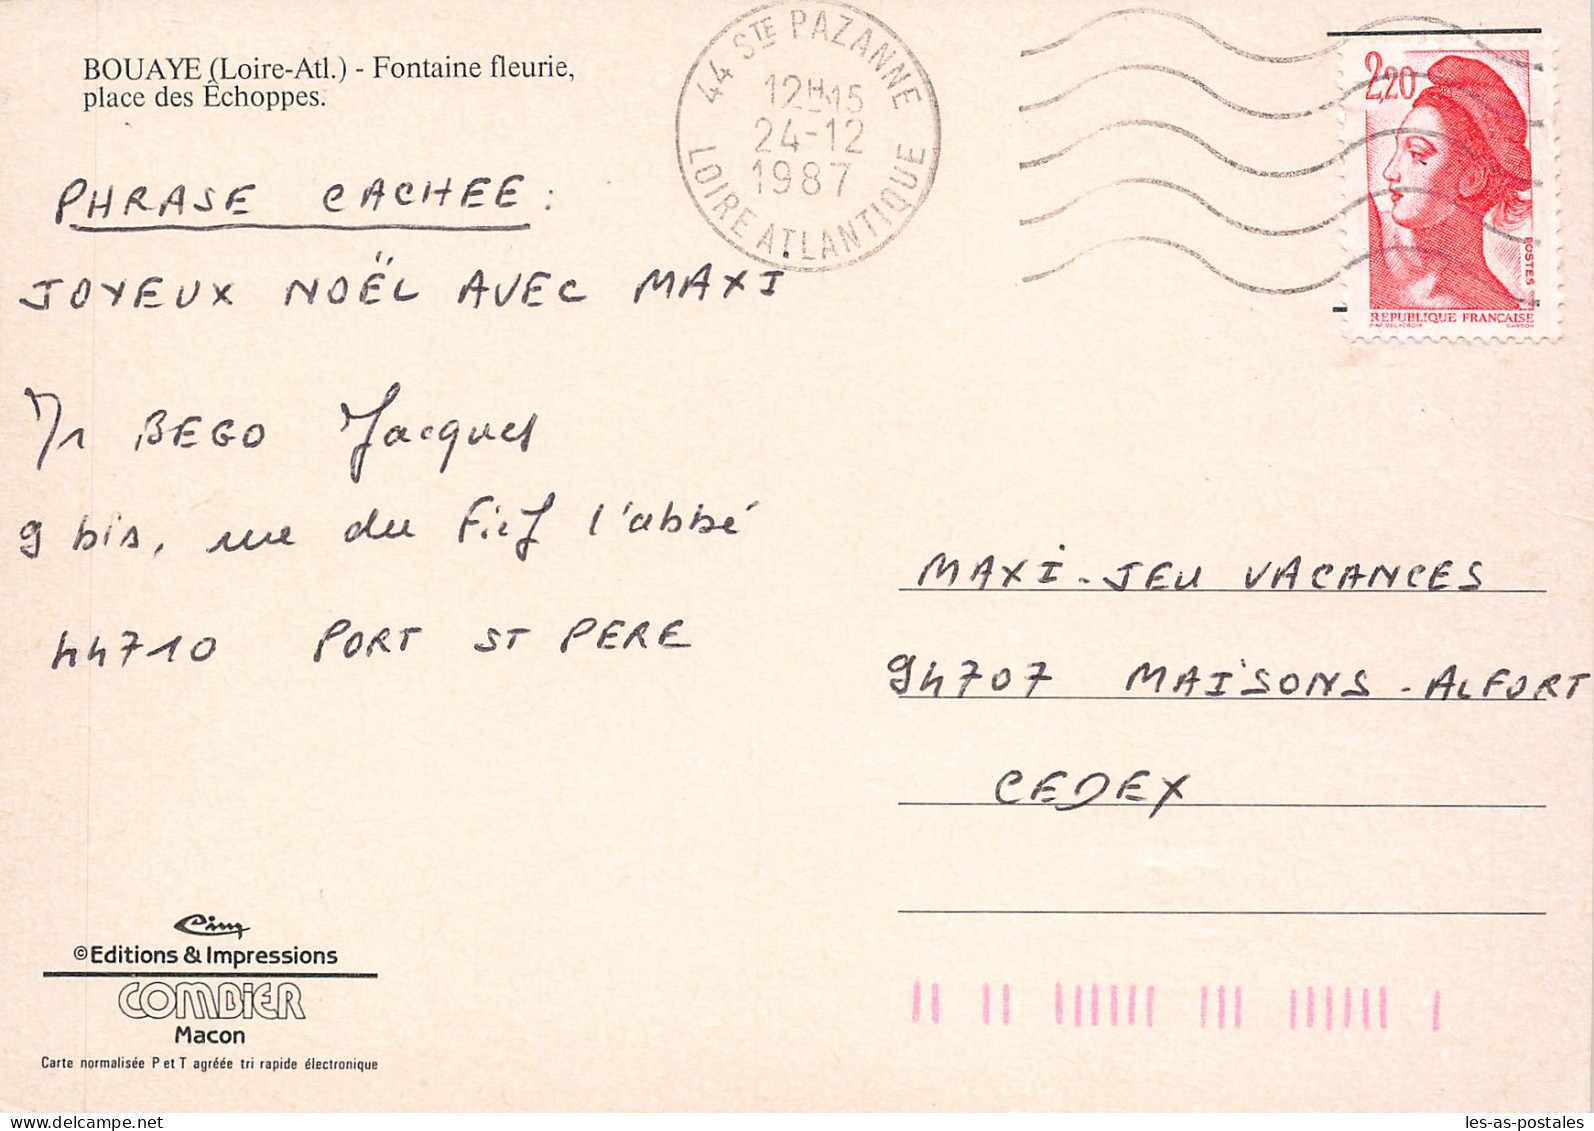 BOUAYE (Loire-Atl.) - Fontaine fleurie,
place des Échoppes.
44 STE PAZANNE
12H15
24-12
1987
LOIRE ATLANTIQUE
2,20
POSTES
REPUBLIQUE FRANÇAISE
D'AP. DELACROIX GANDON
PHRASE CACHEE :
JOYEUX NOËL AVEC MAXI
Mr BEGO Jacques
9 bis, rue du Fief l'abbé
44710 PORT ST PERE
MAXI-JEU VACANCES
94707 MAISONS-ALFORT
CEDEX
Cim
©Editions & Impressions
COMBIER
Macon
Carte normalisée P et T agréée tri rapide électronique
www.delcampe.net
les-as-postales